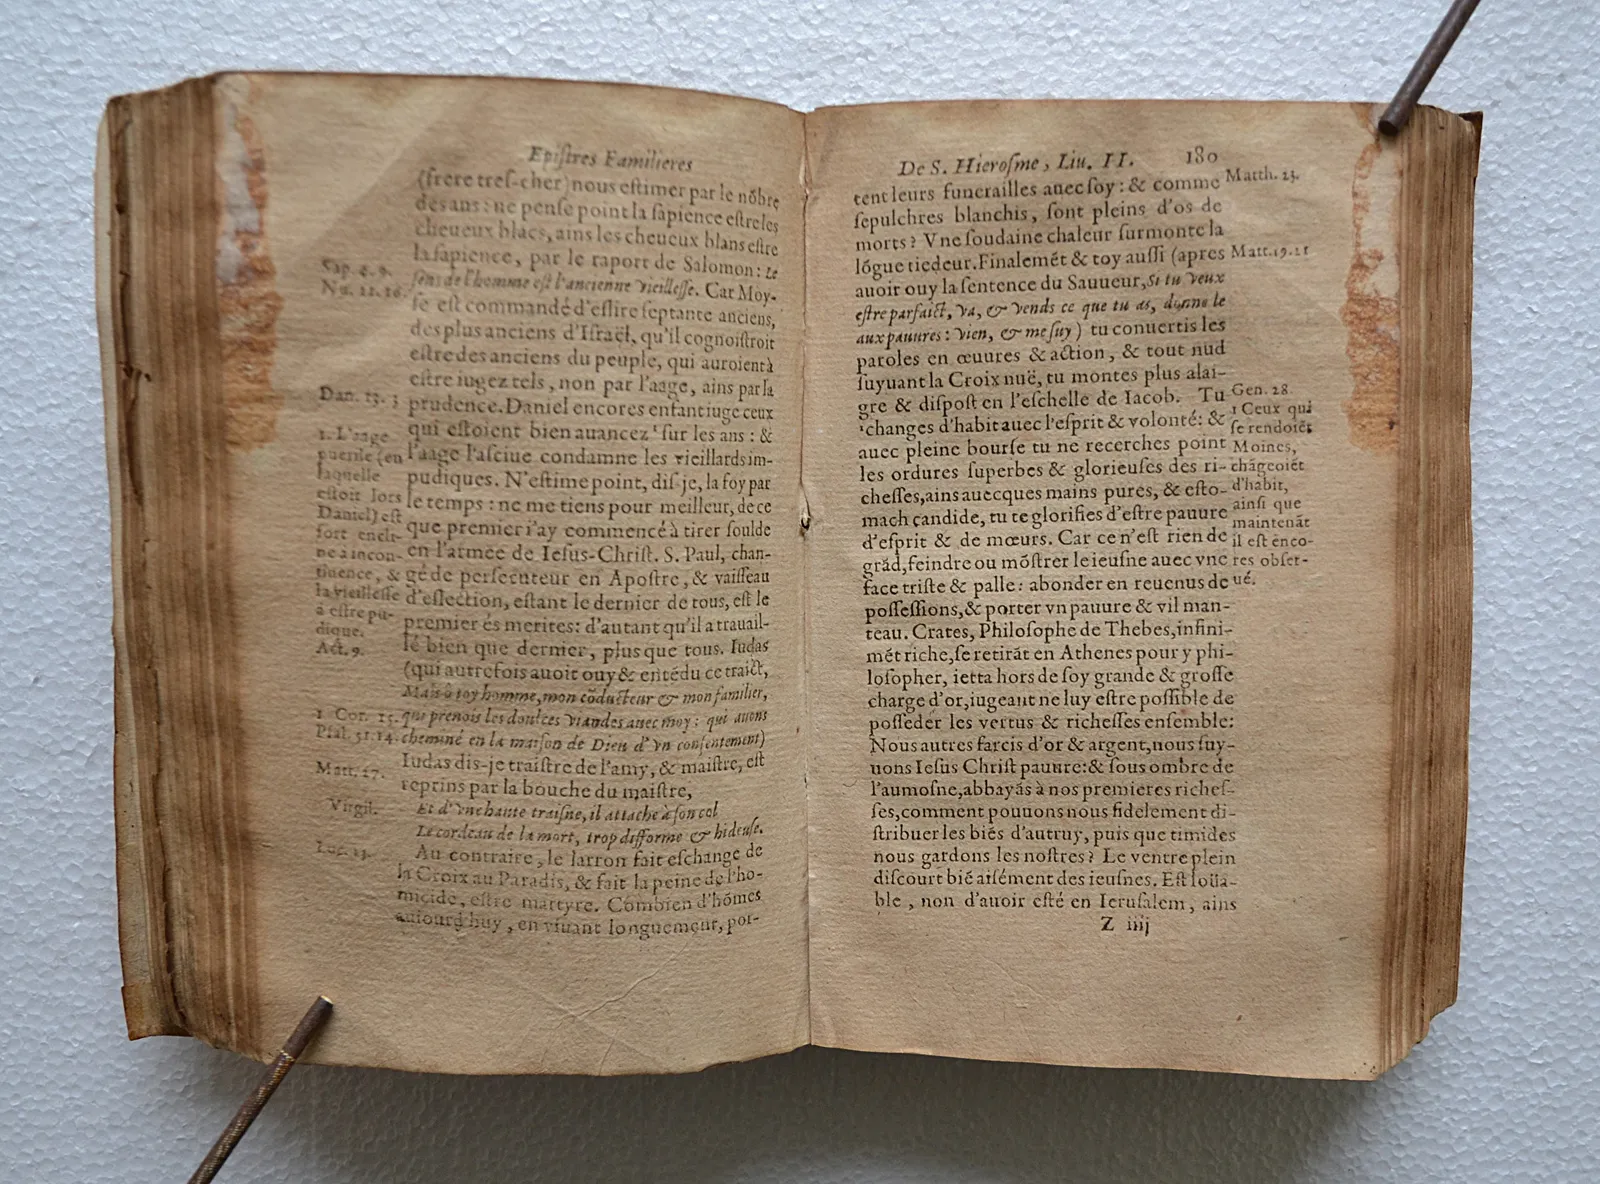 Epistres Familieres
(frere tres-cher) nous estimer par le nõbre
des ans : ne pense point la sapience estre les
cheueux blãcs, ains les cheueux blans estre
la sapience, par le raport de Salomon : Le
sens de l'homme est l'ancienne vieillesse. Car Moy-
se est commandé d'eslire septante anciens,
des plus anciens d'Israël, qu'il cognoistroit
estre des anciens du peuple, qui auroient à
estre iugez tels, non par l'aage, ains par la
prudence. Daniel encores enfant iuge ceux
qui estoient bien auancez ¹ sur les ans : &
l'aage lasciue condamne les vieillards im-
pudiques. N'estime point, dis-je, la foy par
le temps : ne me tiens pour meilleur, de ce
que premier i'ay commencé à tirer soulde
en l'armée de Iesus-Christ. S. Paul, chan-
gé de persecuteur en Apostre, & vaisseau
d'eslection, estant le dernier de tous, est le
premier és merites : d'autant qu'il a trauail-
lé bien que dernier, plus que tous. Iudas
(qui autrefois auoit ouy & entédu ce traict,
Mais ô toy homme, mon cõducteur & mon familier,
que prenois les doulces viandes auec moy : qui auons
cheminé en la maison de Dieu d'vn consentement)
Iudas dis-je traistre de l'amy, & maistre, est
reprins par la bouche du maistre,
Et d'vne hante traisne, il attache à son col
Le cordeau de la mort, trop difforme & hideuse.
Au contraire, le larron fait eschange de
la Croix au Paradis, & fait la peine de l'ho-
micide, estre martyre. Combien d'hõmes
auiourd'huy, en viuant longuement, por-
Sap. 4. 9.
Nu. 11. 16.
Dan. 13. 3
1. L'aage
puerile (en
laquelle
estoit lors
Daniel) est
fort encli-
ne à incon-
tinence, &
la vieillesse
à estre pu-
dique.
Act. 9.
1 Cor. 15.
Psal. 51.14.
Matt. 27.
Virgil.
Luc. 23.
De S. Hierosme, Liu. II. 180
tent leurs funerailles auec soy : & comme
sepulchres blanchis, sont pleins d'os de
morts ? Vne soudaine chaleur surmonte la
lógue tiedeur. Finalemét & toy aussi (apres
auoir ouy la sentence du Sauueur, Si tu veux
estre parfaict, va, & vends ce que tu as, donne le
aux pauures : vien, & me suy) tu conuertis les
paroles en œuures & action, & tout nud
suyuant la Croix nuë, tu montes plus alai-
gre & dispost en l'eschelle de Iacob. Tu
¹changes d'habit auec l'esprit & volonté : &
auec pleine bourse tu ne recerches point
les ordures superbes & glorieuses des ri-
chesses, ains auecques mains pures, & esto-
mach candide, tu te glorifies d'estre pauure
d'esprit & de mœurs. Car ce n'est rien de
grãd, feindre ou mõstrer le ieusne auec vne
face triste & palle : abonder en reuenus de
possessions, & porter vn pauure & vil man-
teau. Crates, Philosophe de Thebes, infini-
mét riche, se retirãt en Athenes pour y phi-
losopher, ietta hors de soy grande & grosse
charge d'or, iugeant ne luy estre possible de
posseder les vertus & richesses ensemble :
Nous autres farcis d'or & argent, nous suy-
uons Iesus Christ pauure : & sous ombre de
l'aumosne, abbayãs à nos premieres riches-
ses, comment pouuons nous fidelement di-
stribuer les biés d'autruy, puis que timides
nous gardons les nostres ? Le ventre plein
discourt bié aisément des ieusnes. Est loüa-
ble, non d'auoir esté en Ierusalem, ains
Z iiij
Matth. 23.
Matt. 19. 21
Gen. 28
1 Ceux qui
se rendoiét
Moines,
chãgeoiét
d'habit,
ainsi que
maintenãt
il est enco-
res obser-
ué.